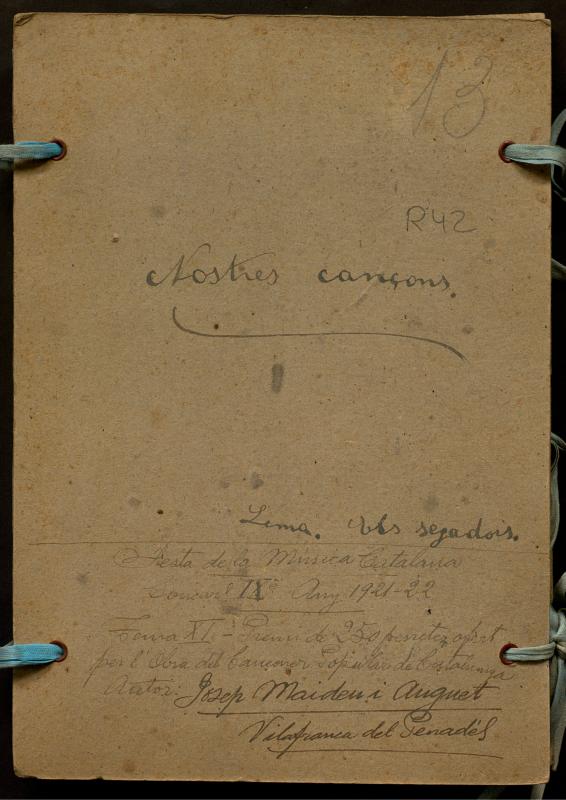 13
R42
Nostres cançons.
Lema. Els segadors.
Festa de la Música Catalana
Concurs IX Any 1921-22
Tema XI - Premi de 250 pessetes ofert
per l'Obra del Cançoner Popular de Catalunya
Autor: Josep Maideu i Auguet
Vilafranca del Penadés